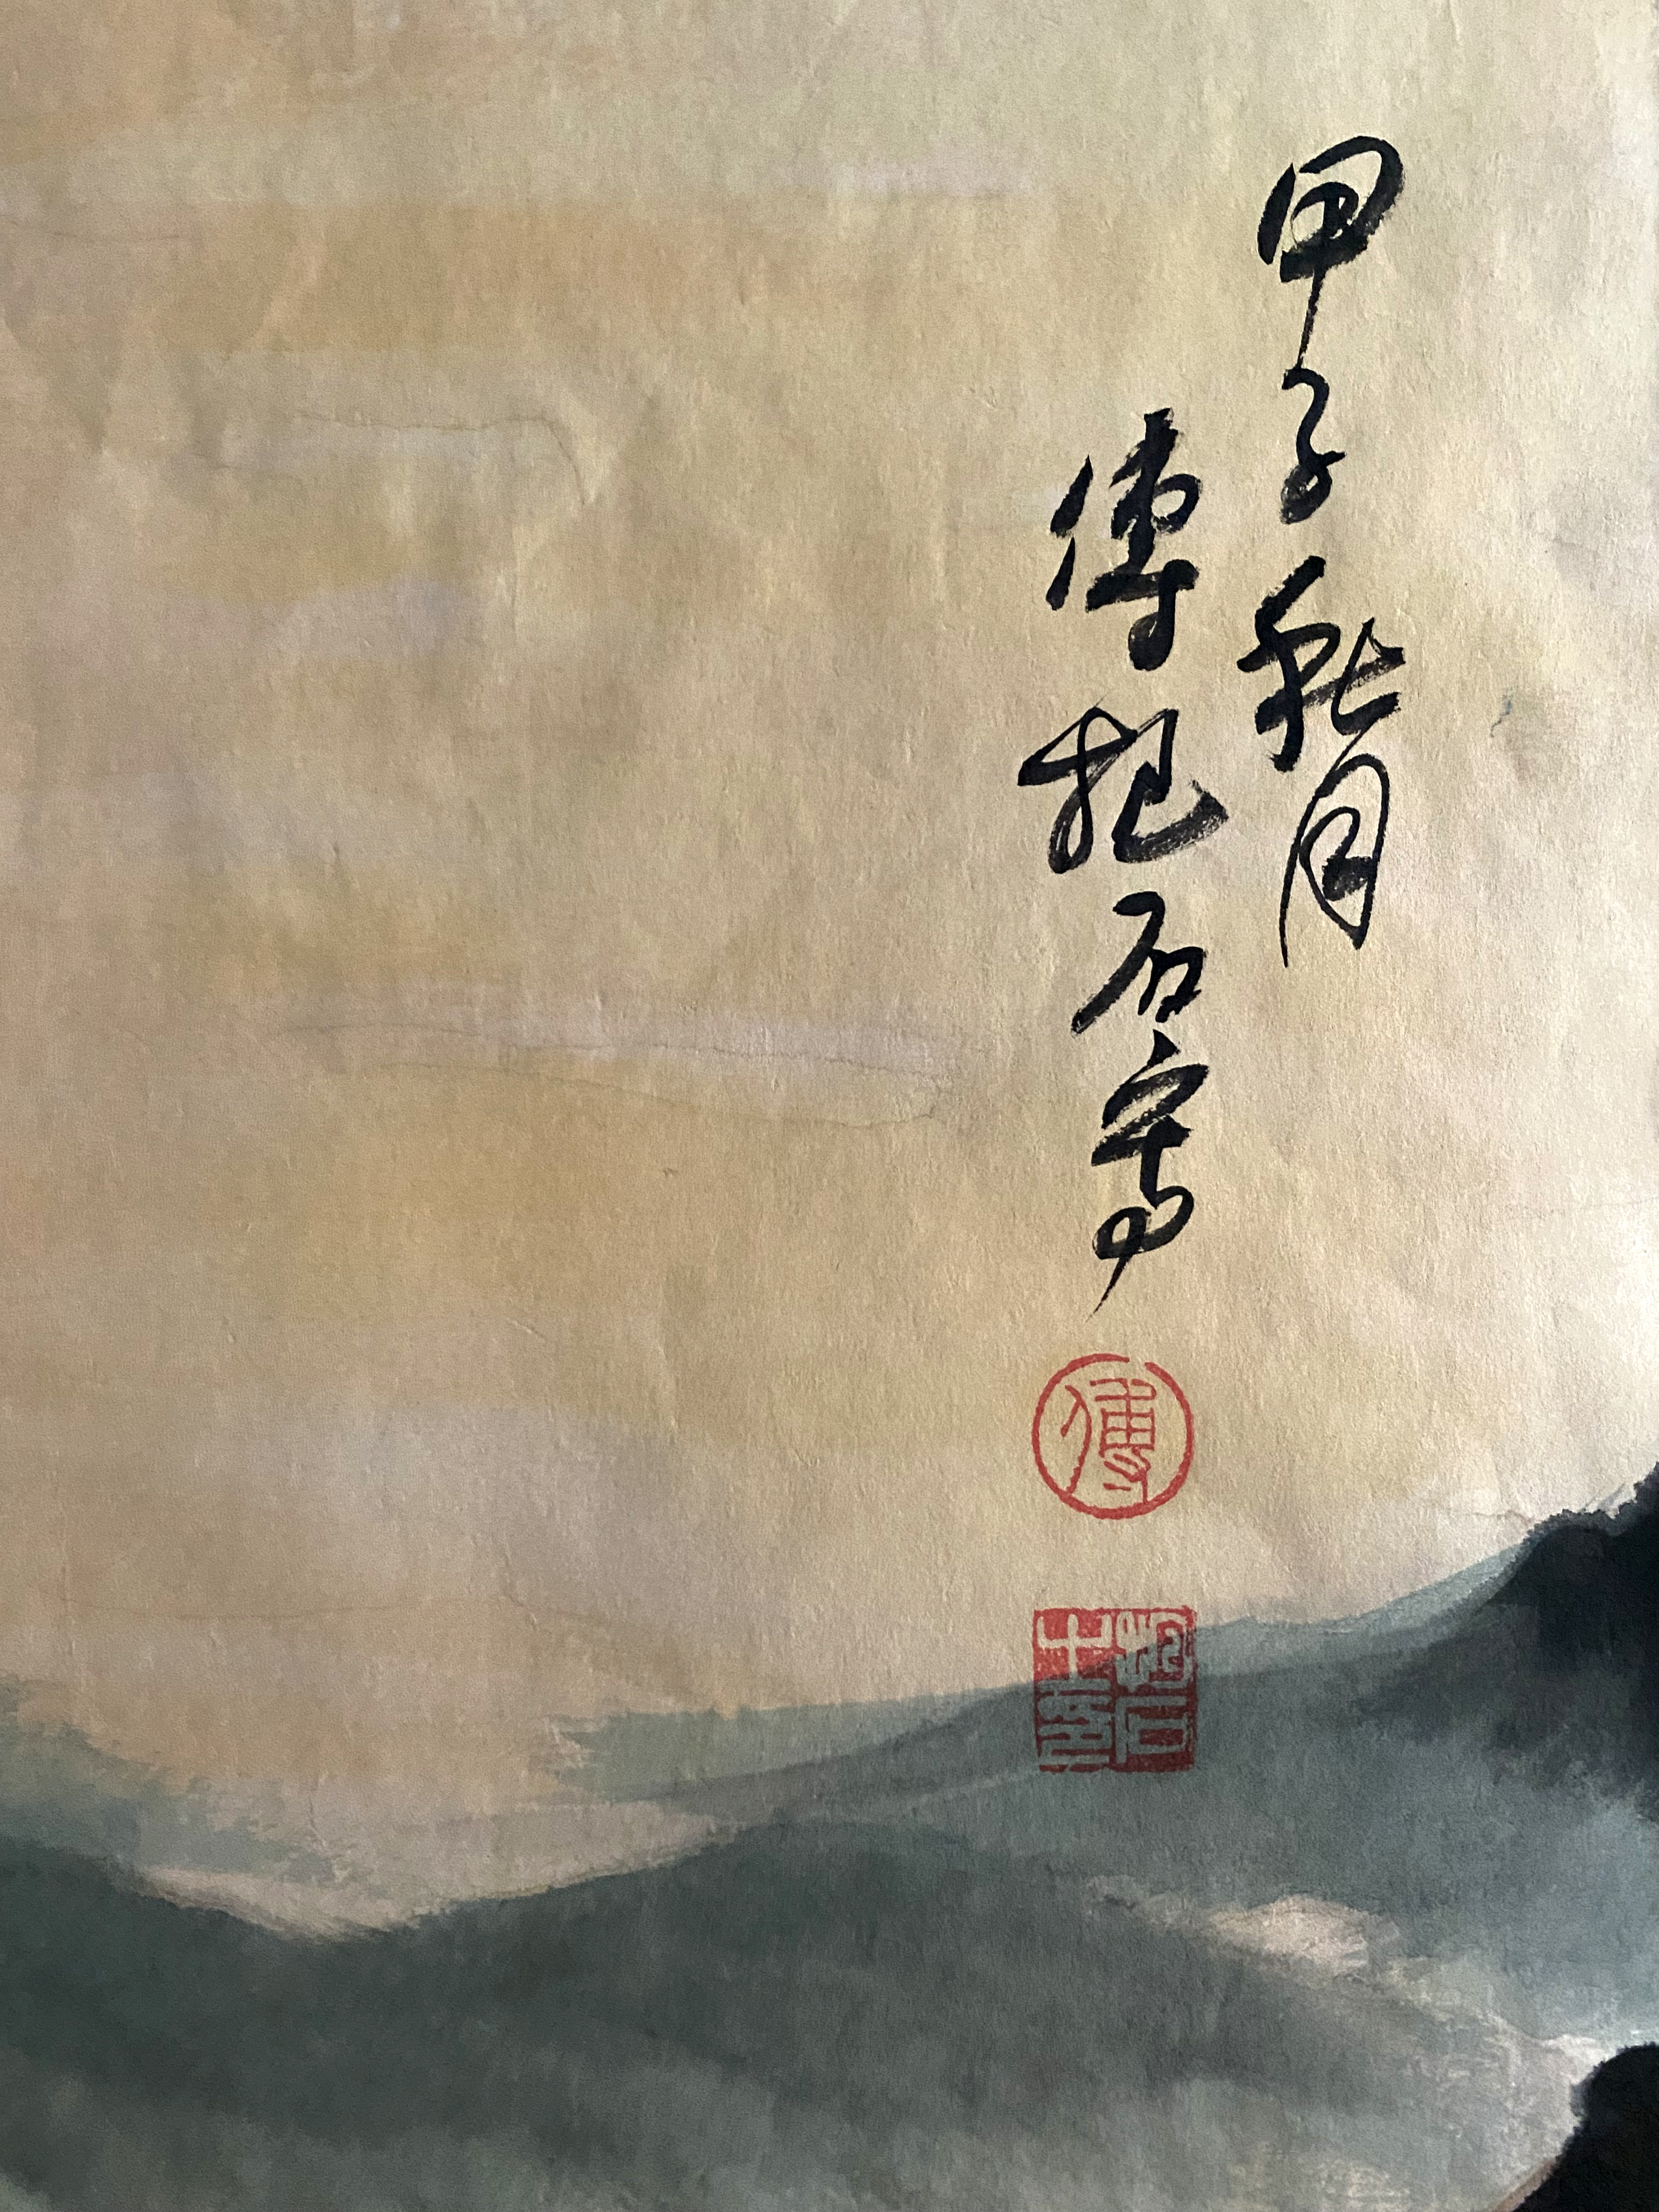 甲子秋月
傅抱石寫
傅
抱石